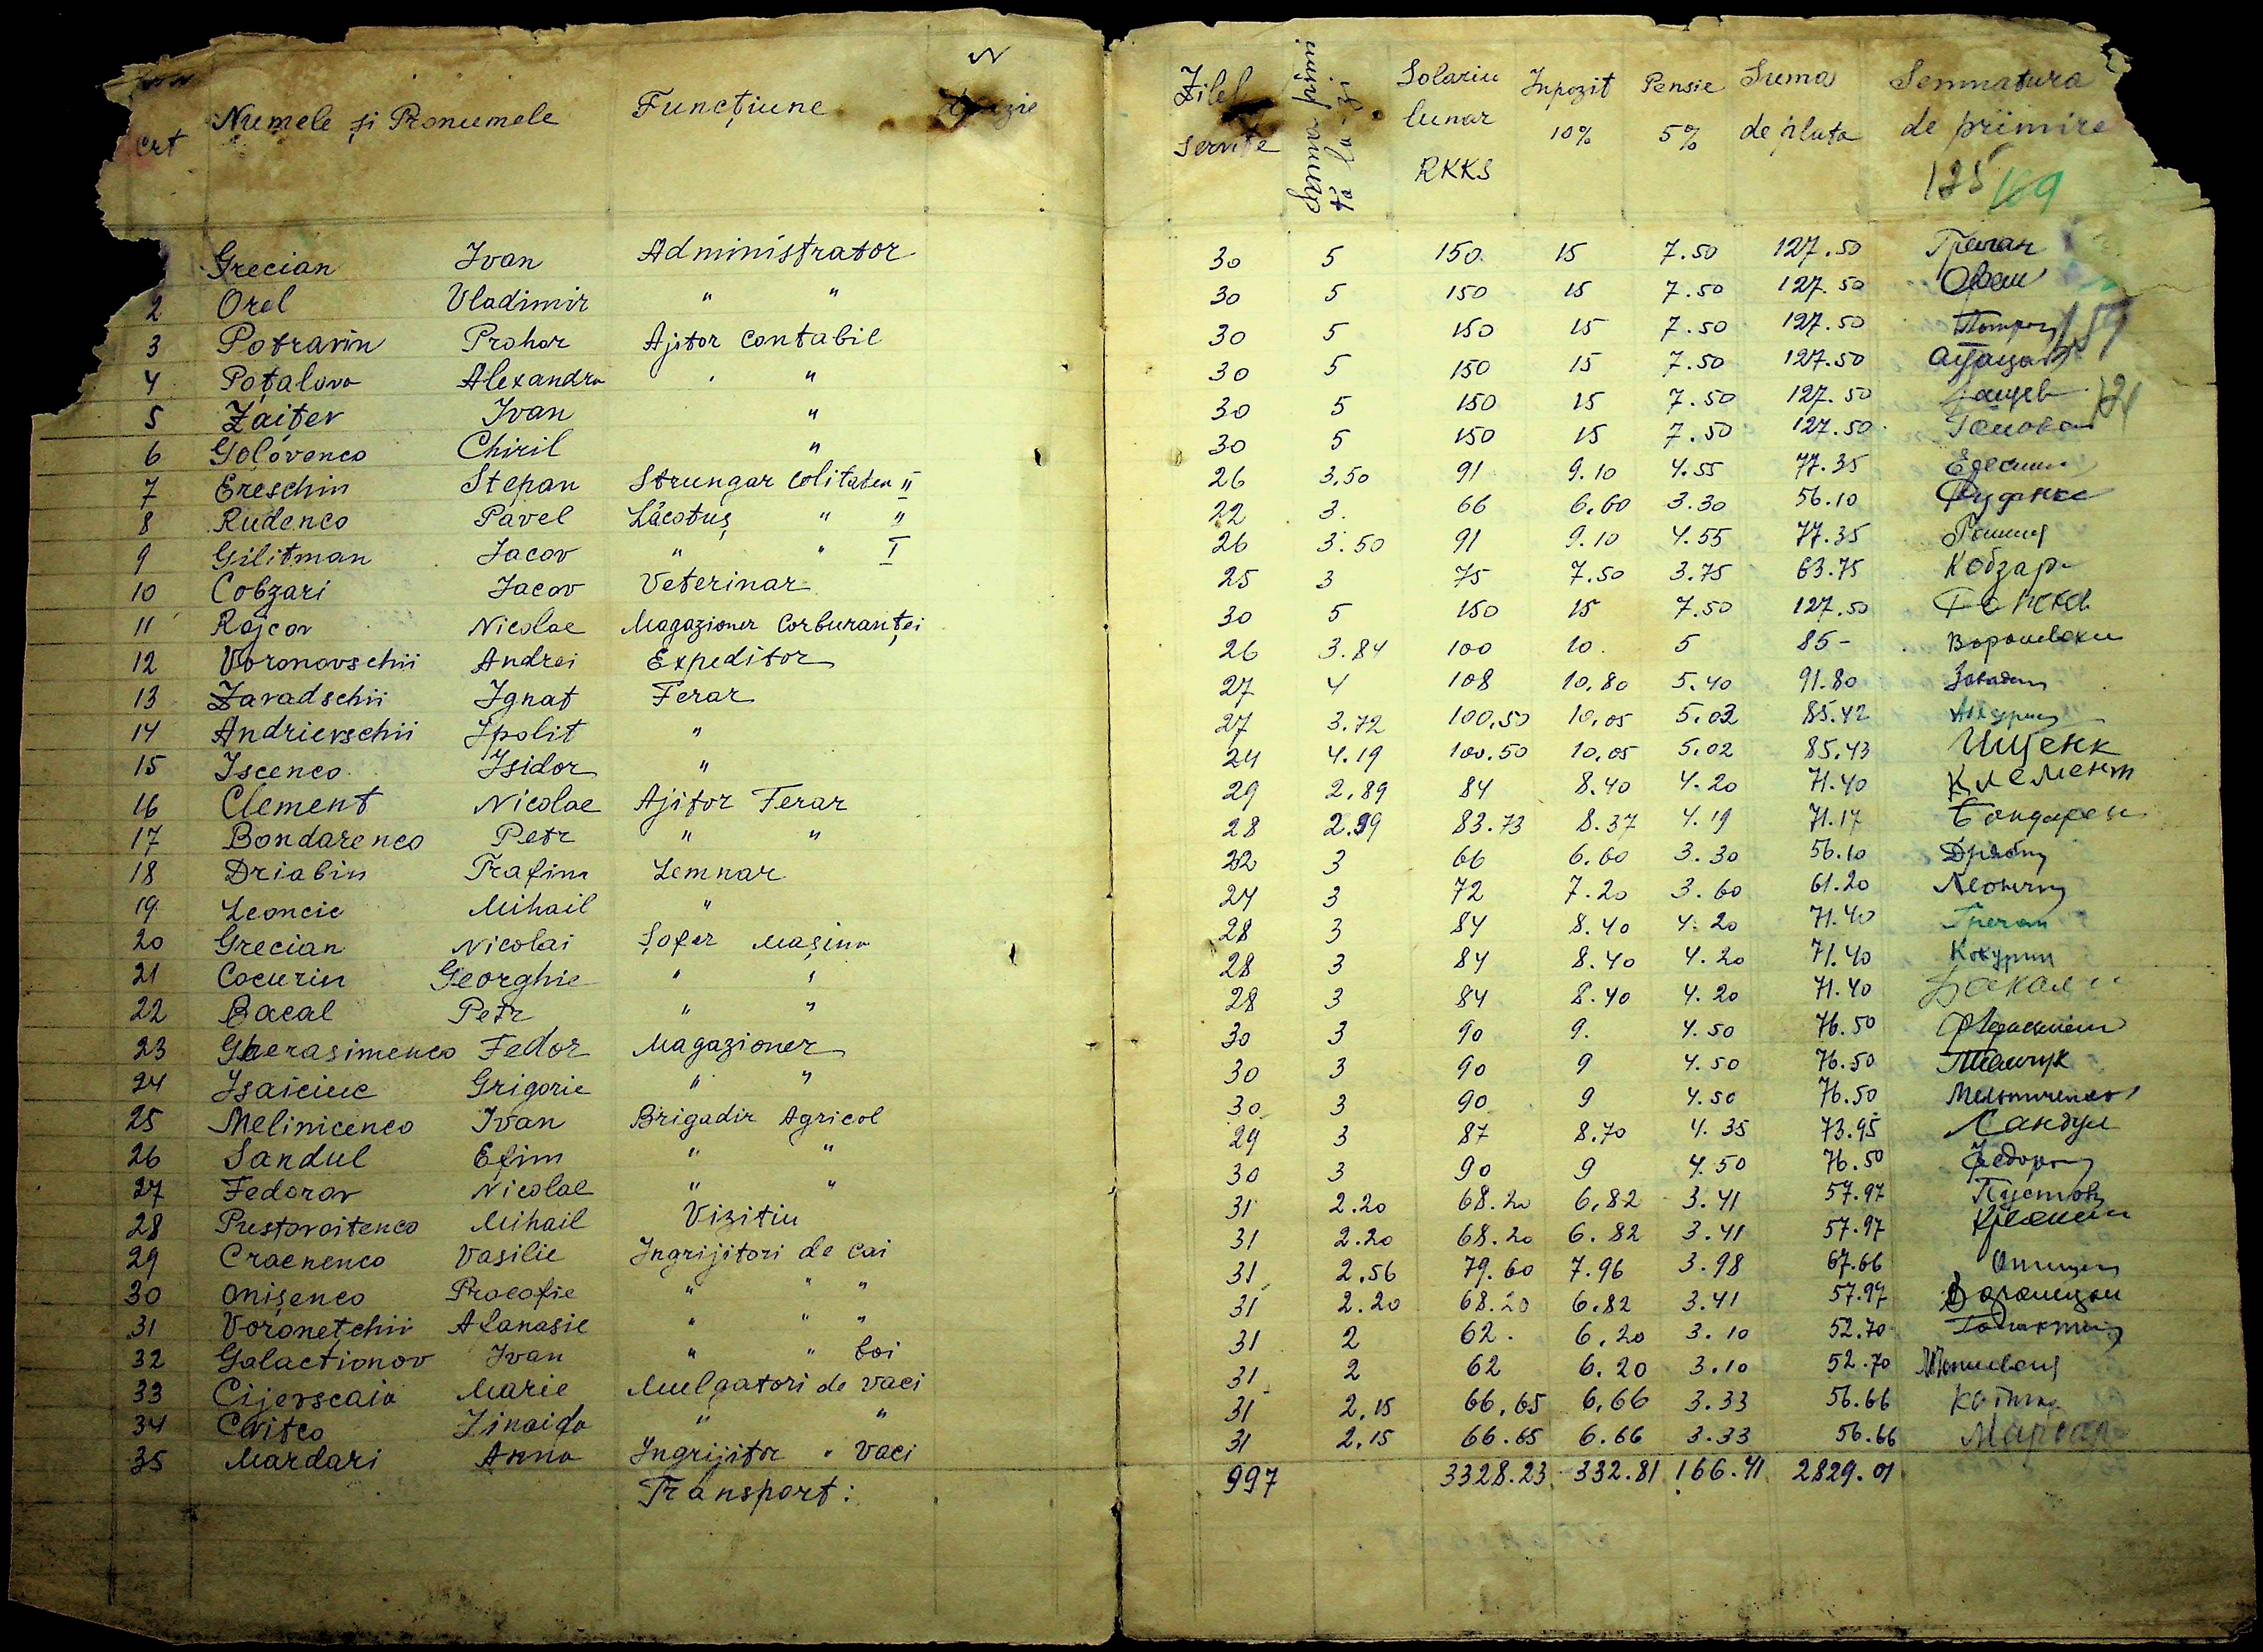 crt Numele și Pronumele Funcțiune Zilel servite Solariu lunar RKKS Inpozit 10% Pensie 5% Suma de plata Semnatura de priimire
125 169
Grecian Ivan Administrator 30 5 150 15 7.50 127.50 Гречан
2 Orel Vladimir " " 30 5 150 15 7.50 127.50 Орел
3 Potravin Prohor Ajitor Contabil 30 5 150 15 7.50 127.50
4 Poțalova Alexandra " " 30 5 150 15 7.50 127.50
5 Zaițev Ivan " 30 5 150 15 7.50 127.50
6 Golovenco Chiril " 30 5 150 15 7.50 127.50
7 Ereschin Stepan Strungar Colitatea II 26 3.50 91 9.10 4.55 77.35
8 Rudenco Pavel Lăcotuș " " 22 3. 66 6.60 3.30 56.10 Руденко
9 Gilitman Jacov " " I 26 3.50 91 9.10 4.55 77.35
10 Cobzari Jacov Veterinar 25 3 75 7.50 3.75 63.75 Кобзар
11 Rajcov Nicolae Magazioner Corburanței 30 5 150 15 7.50 127.50
12 Voronovschii Andrei Expeditor 26 3.84 100 10. 5 85-
13 Zavadschii Ignat Ferar 27 4 108 10.80 5.40 91.80
14 Andrievschii Ipolit " 27 3.72 100.50 10.05 5.02 85.42
15 Iscenco Isidor " 24 4.19 100.50 10.05 5.02 85.43 Ищенк
16 Clement Nicolae Ajitor Ferar 29 2.89 84 8.40 4.20 71.40 Клемент
17 Bondarenco Petr " " 28 2.99 83.73 8.37 4.19 71.17 Бондарен
18 Driabin Trafim Lemnar 22 3 66 6.60 3.30 56.10
19 Leoncie Mihail " 24 3 72 7.20 3.60 61.20
20 Grecian Nicolai Șofer Mașina 28 3 84 8.40 4.20 71.40 Гречан
21 Cocurin Georghie " " 28 3 84 8.40 4.20 71.40 Кокурин
22 Bacal Petr " " 28 3 84 8.40 4.20 71.40 Бакал
23 Gherasimenco Fedor Magazioner 30 3 90 9. 4.50 76.50
24 Isaiciuc Grigorie " " 30 3 90 9 4.50 76.50
25 Melinicenco Ivan Brigadir Agricol 30 3 90 9 4.50 76.50 Мельниченко
26 Sandul Efim " " 29 3 87 8.70 4.35 73.95 Сандул
27 Fedorov Nicolae " " 30 3 90 9 4.50 76.50
28 Pustovoitenco Mihail Vizitiu 31 2.20 68.20 6.82 3.41 57.97
29 Craenenco Vasilie Ingrijitori de cai 31 2.20 68.20 6.82 3.41 57.97
30 Onișenco Procofie " " " 31 2.56 79.60 7.96 3.98 67.66
31 Voronetchii Afanasie " " " 31 2.20 68.20 6.82 3.41 57.97
32 Galacționov Ivan " " boi 31 2 62. 6.20 3.10 52.70
33 Cijevscaia Marie Mulgatori de vaci 31 2 62 6.20 3.10 52.70
34 Cvitco Zinaida " " 31 2.15 66.65 6.66 3.33 56.66
35 Mardari Anna Ingrijitor " vaci 31 2.15 66.65 6.66 3.33 56.66
Transport: 997 3328.23 332.81 166.41 2829.01